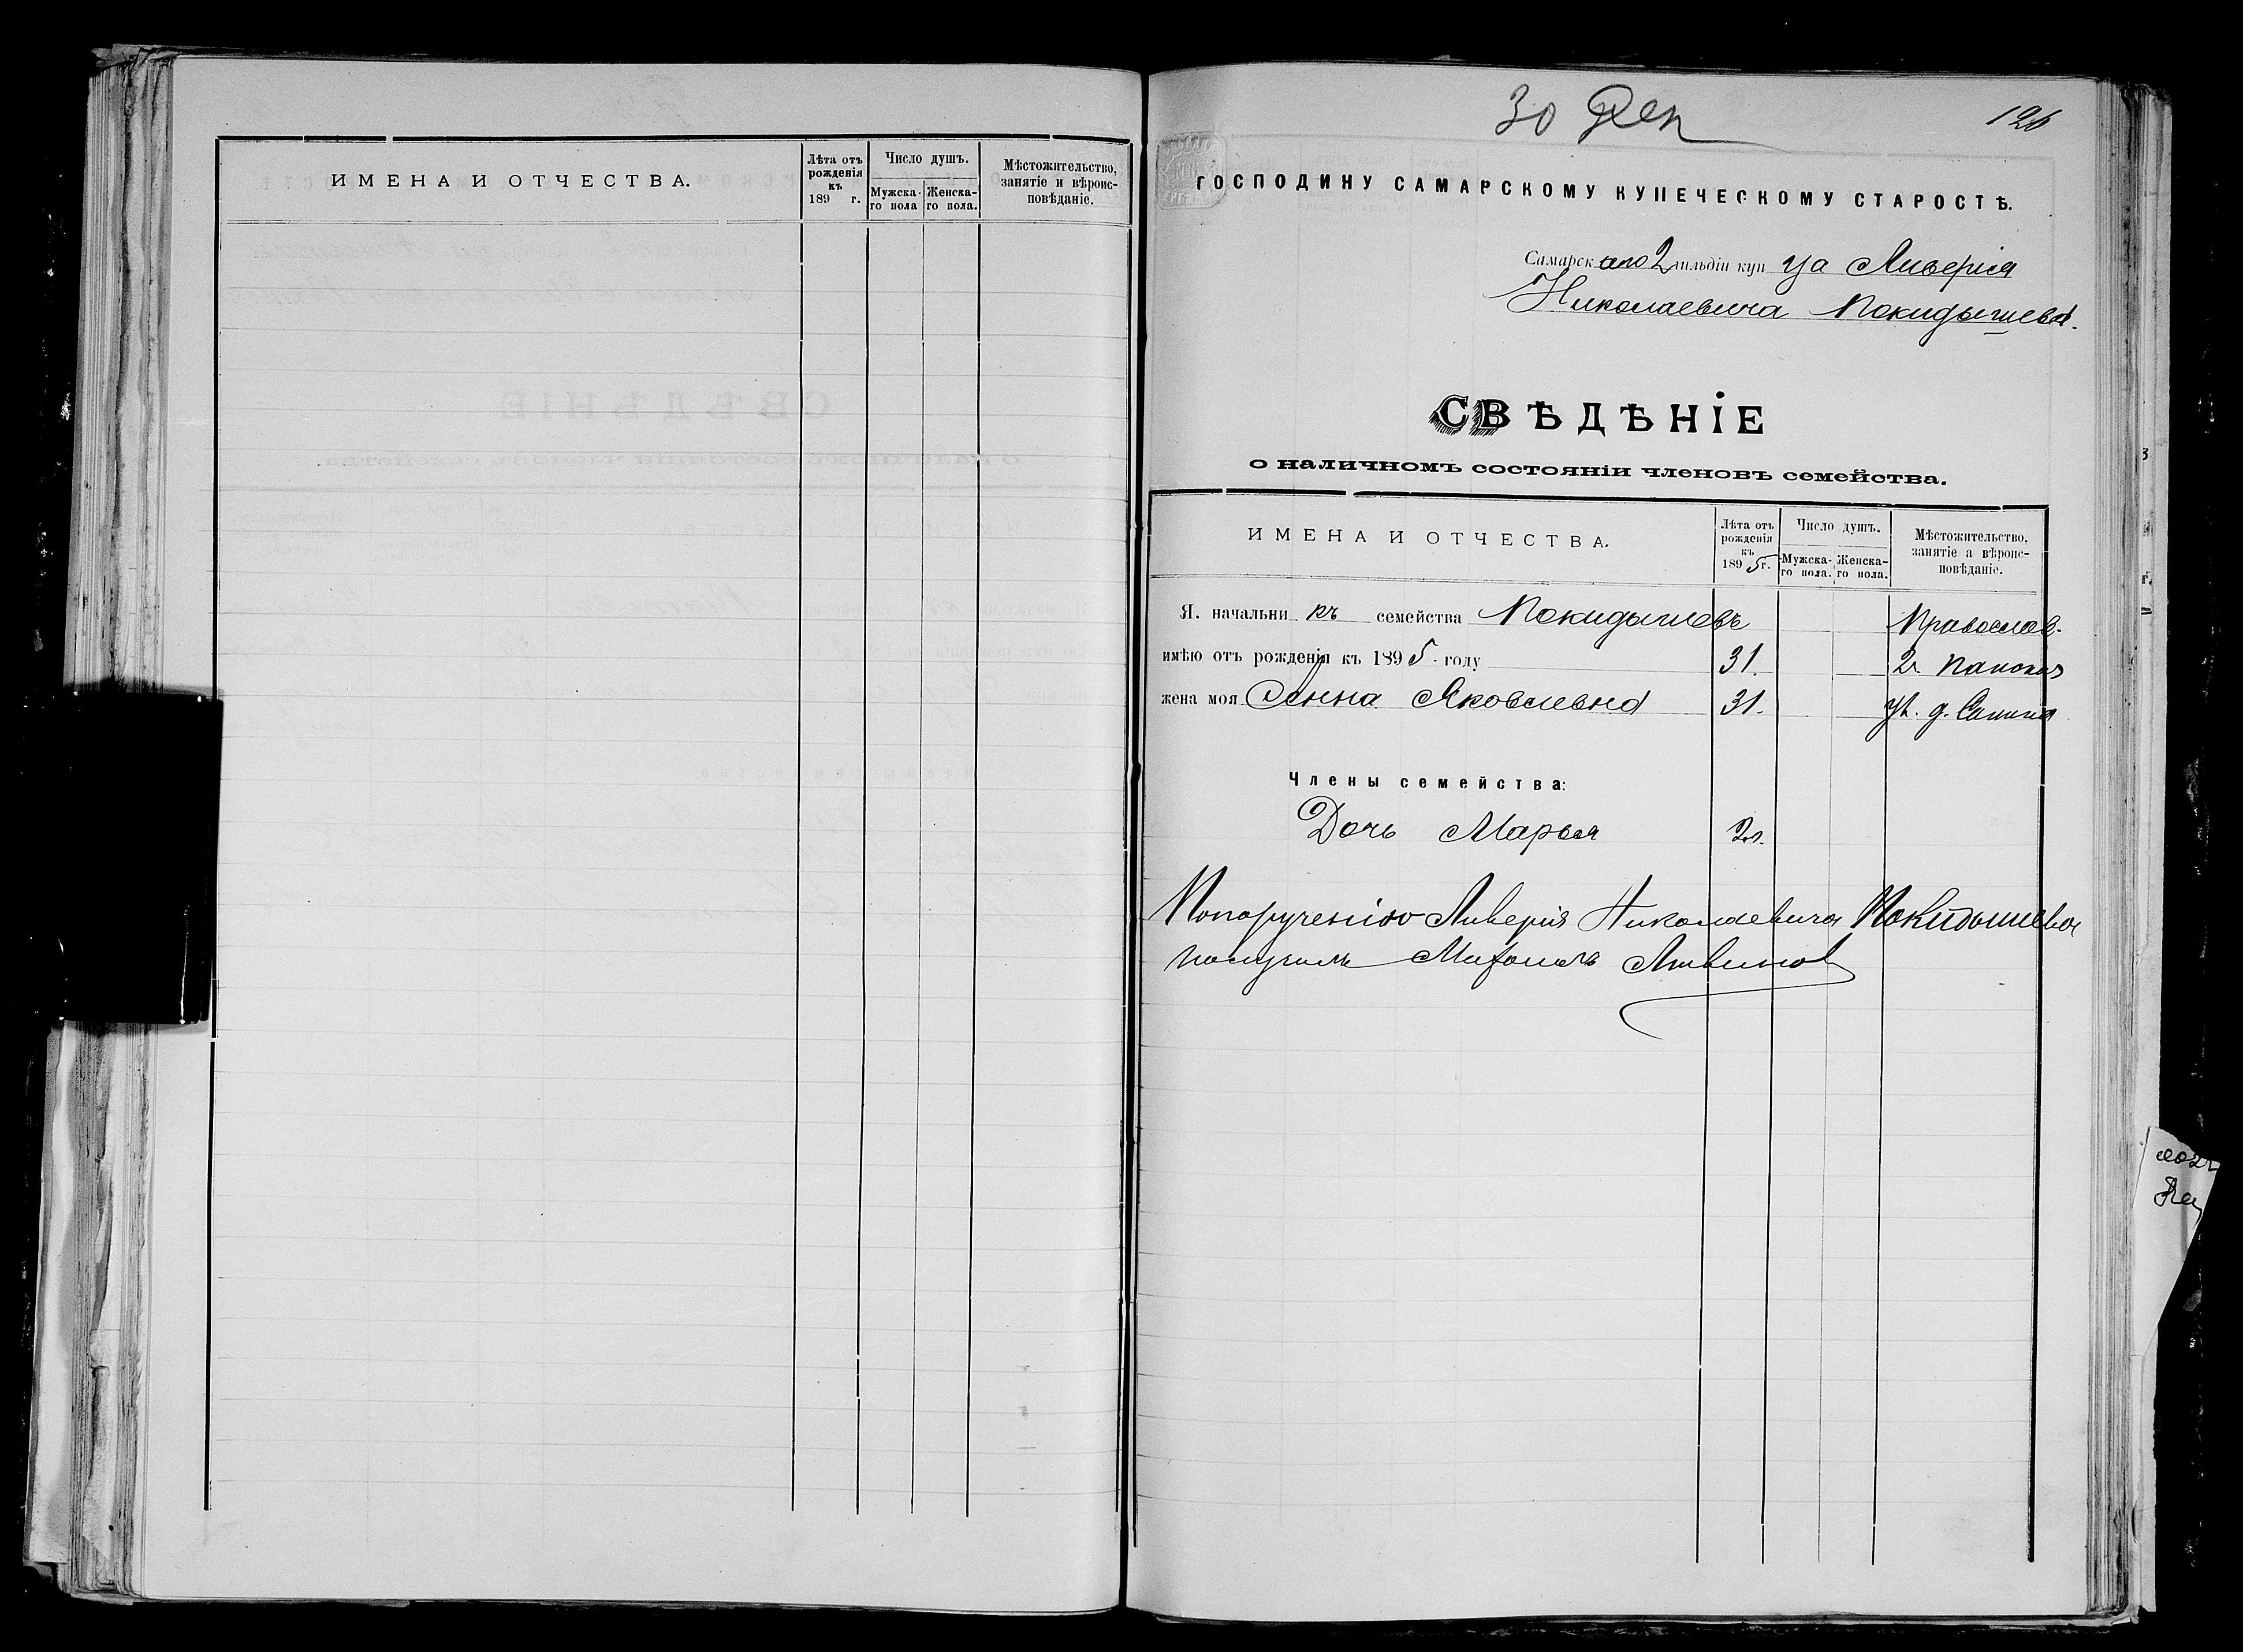 ИМЕНА И ОТЧЕСТВА.
Лѣта отъ рожденія къ 189 г.
Число душъ.
Мужска-го пола
Женска-го пола.
Мѣстожительство, занятіе и вѣроис-повѣданіе.
30 Дек
126
ГОСПОДИНУ САМАРСКОМУ КУПЕЧЕСКОМУ СТАРОСТѢ.
Самарскаго 2 гильдіи купца Ливерія
Николаевича Покидышева.
СВѢДѢНІЕ
о наличномъ состояніи членовъ семейства.
ИМЕНА И ОТЧЕСТВА.
Лѣта отъ рожденія къ 1895 г.
Число душъ.
Мужска-го пола.
Женска-го пола.
Мѣстожительство, занятіе а вѣроис-повѣданіе.
Я. начальникъ семейства Покидышевъ Православ.
имѣю отъ рожденія къ 1895 году 31. 2. Панская
жена моя Анна Яковлевна 31. ул. д. Санина
Члены семейства:
Дочь Марья 2 л.
По порученію Ливерія Николаевича Покидышева
получилъ Литвинов